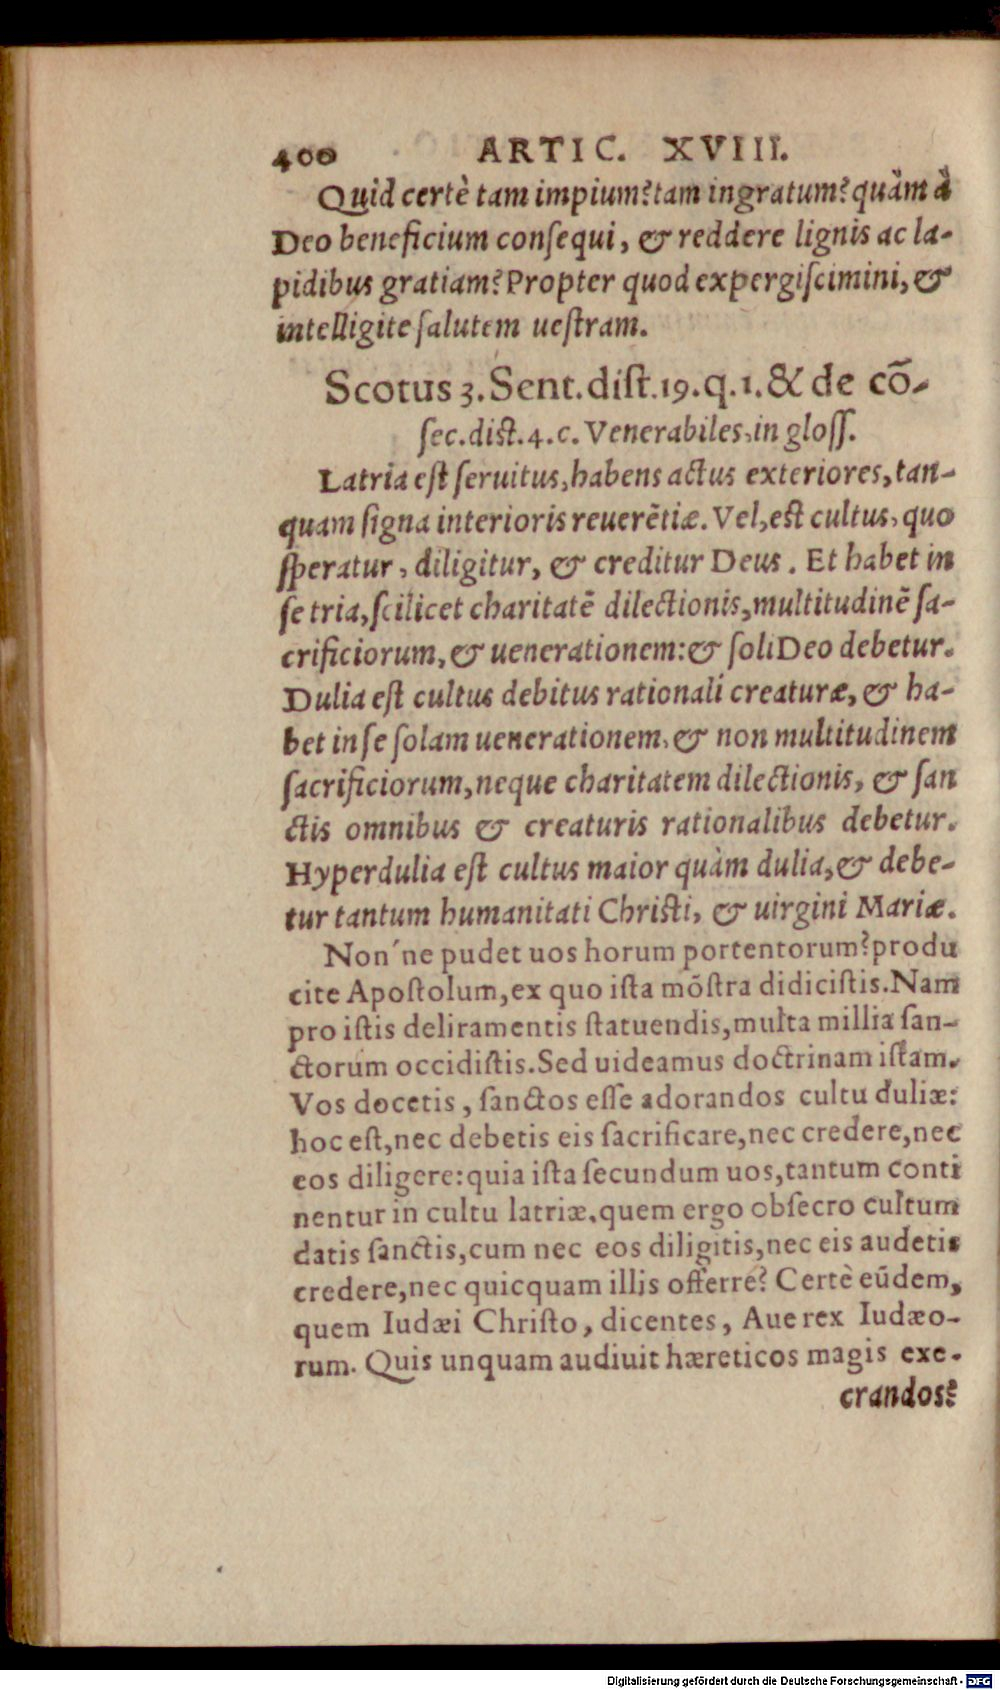 400 ARTIC. XVIII.
Quid certè tam impium? tam ingratum? quàm à
Deo beneficium conſequi, & reddere lignis ac la-
pidibus gratiam? Propter quod expergiſcimini, &
intelligite ſalutem ueſtram.
Scotus 3. Sent. diſt. 19. q. 1. & de cõ-
ſec. diſt. 4. c. Venerabiles, in gloſſ.
Latria eſt ſeruitus, habens actus exteriores, tan-
quam ſigna interioris reuerẽtiæ. Vel, eſt cultus, quo
ſperatur, diligitur, & creditur Deus. Et habet in
ſe tria, ſcilicet charitatẽ dilectionis, multitudinẽ ſa-
crificiorum, & uenerationem: & ſoli Deo debetur.
Dulia eſt cultus debitus rationali creaturæ, & ha-
bet in ſe ſolam uenerationem, & non multitudinem
ſacrificiorum, neque charitatem dilectionis, & ſan
ctis omnibus & creaturis rationalibus debetur.
Hyperdulia eſt cultus maior quàm dulia, & debe-
tur tantum humanitati Chriſti, & uirgini Mariæ.
Non'ne pudet uos horum portentorum? produ
cite Apoſtolum, ex quo iſta mõſtra didiciſtis. Nam
pro iſtis deliramentis ſtatuendis, multa millia ſan-
ctorum occidiſtis. Sed uideamus doctrinam iſtam.
Vos docetis, ſanctos eſſe adorandos cultu duliæ:
hoc eſt, nec debetis eis ſacrificare, nec credere, nec
eos diligere: quia iſta ſecundum uos, tantum conti
nentur in cultu latriæ. quem ergo obſecro cultum
datis ſanctis, cum nec eos diligitis, nec eis audetis
credere, nec quicquam illis offerre? Certè eũdem,
quem Iudæi Chriſto, dicentes, Aue rex Iudæo-
rum. Quis unquam audiuit hæreticos magis exe-
crandos?
Digitalisierung gefördert durch die Deutsche Forschungsgemeinschaft - DFG